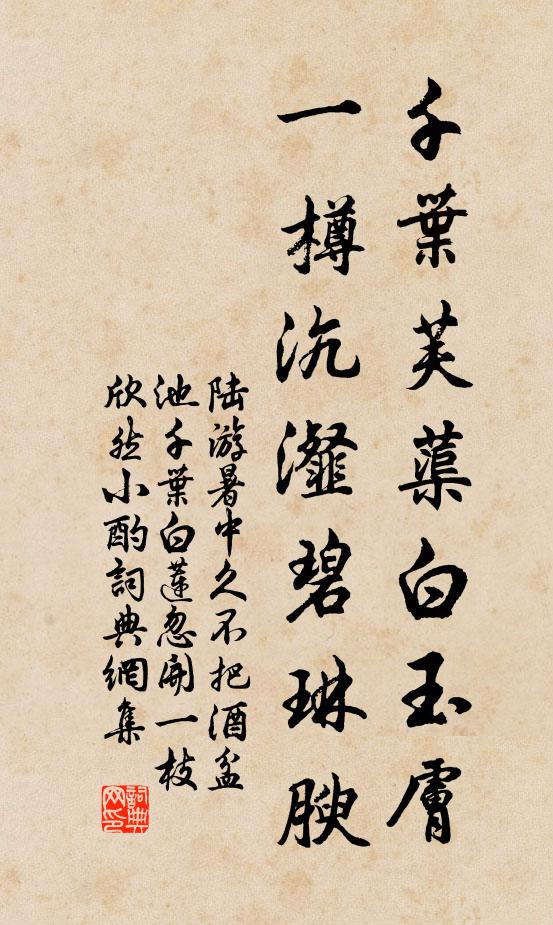 千葉芙蕖白玉膚
一樽沆瀣碧琳腴
陆游暑中久不把酒盆
池千葉白蓮忽開一枝
欣然小酌詞典網集
詞典网印